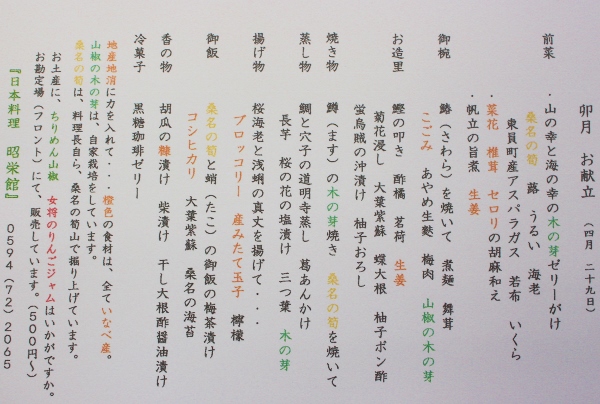 卯月　お献立　（四月　二十九日）
前菜　・山の幸と海の幸の木の芽ゼリーがけ
桑名の筍　蕗　うるい　海老
東員町産アスパラガス　若布　いくら
・菜花　椎茸　セロリの胡麻和え
・帆立の旨煮　生姜
御椀　鰆（さわら）を焼いて　煮麺　舞茸
こごみ　あやめ生麩　梅肉　山椒の木の芽
お造里　鰹の叩き　酢橘　茗荷　生姜
菊花浸し　大葉紫蘇　蝶大根　柚子ポン酢
蛍烏賊の沖漬け　柚子おろし
焼き物　鱒（ます）の木の芽焼き　桑名の筍を焼いて
蒸し物　鯛と穴子の道明寺蒸し　葛あんかけ
長芋　桜の花の塩漬け　三つ葉　木の芽
揚げ物　桜海老と浅蜊の真丈を揚げて・・・
ブロッコリー　産みたて玉子　檸檬
御飯　桑名の筍と蛸（たこ）の御飯の梅茶漬け
コシヒカリ　大葉紫蘇　桑名の海苔
香の物　胡瓜の糠漬け　柴漬け　干し大根酢醤油漬け
冷菓子　黒糖珈琲ゼリー
地産地消に力を入れて・・・橙色の食材は、全ていなべ産。
山椒の木の芽は、自家栽培をしています。
桑名の筍は、料理長自ら、桑名の筍山で掘り上げています。
お土産に、ちりめん山椒　女将のりんごジャムはいかがですか。
お勘定場（フロント）にて、販売しています。（５００円～）
『日本料理　昭栄館』　０５９４（７２）２０６５